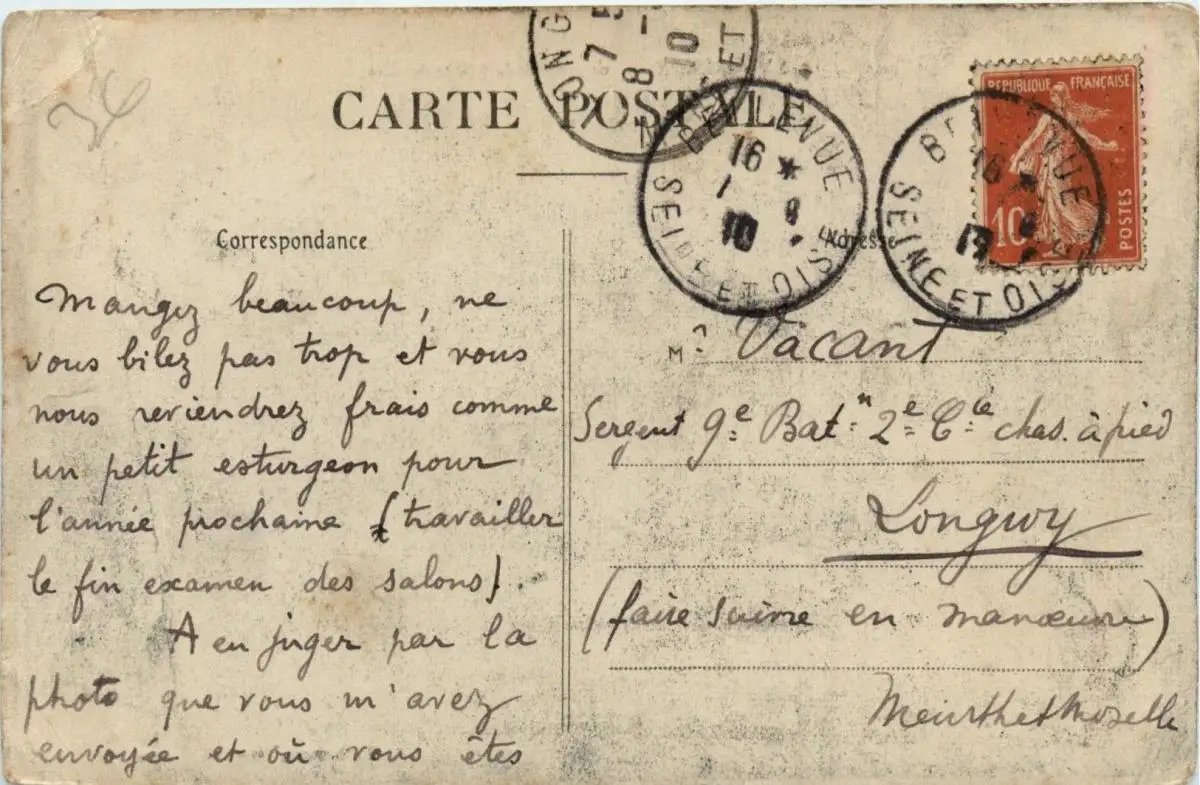 36
CARTE POSTALE
LONG
7 5
8 -
10
M ET
BELLEVUE
16 *
1 8
10
SEINE ET OISE
BELLEVUE
16 *
8
SEINE ET OISE
REPUBLIQUE FRANÇAISE
10
POSTES
Correspondance
Adresse
Mangez beaucoup, ne
vous bilez pas trop et vous
nous reviendrez frais comme
un petit esturgeon pour
l'année prochaine (travailler
le fin examen des salons).
A en juger par la
photo que vous m'avez
envoyée et où vous êtes
Mr Vacant
Sergent 9e Batn 2e Cie chas. à pied
Longwy
(faire suivre en manœuvre)
Meurthe t Moselle